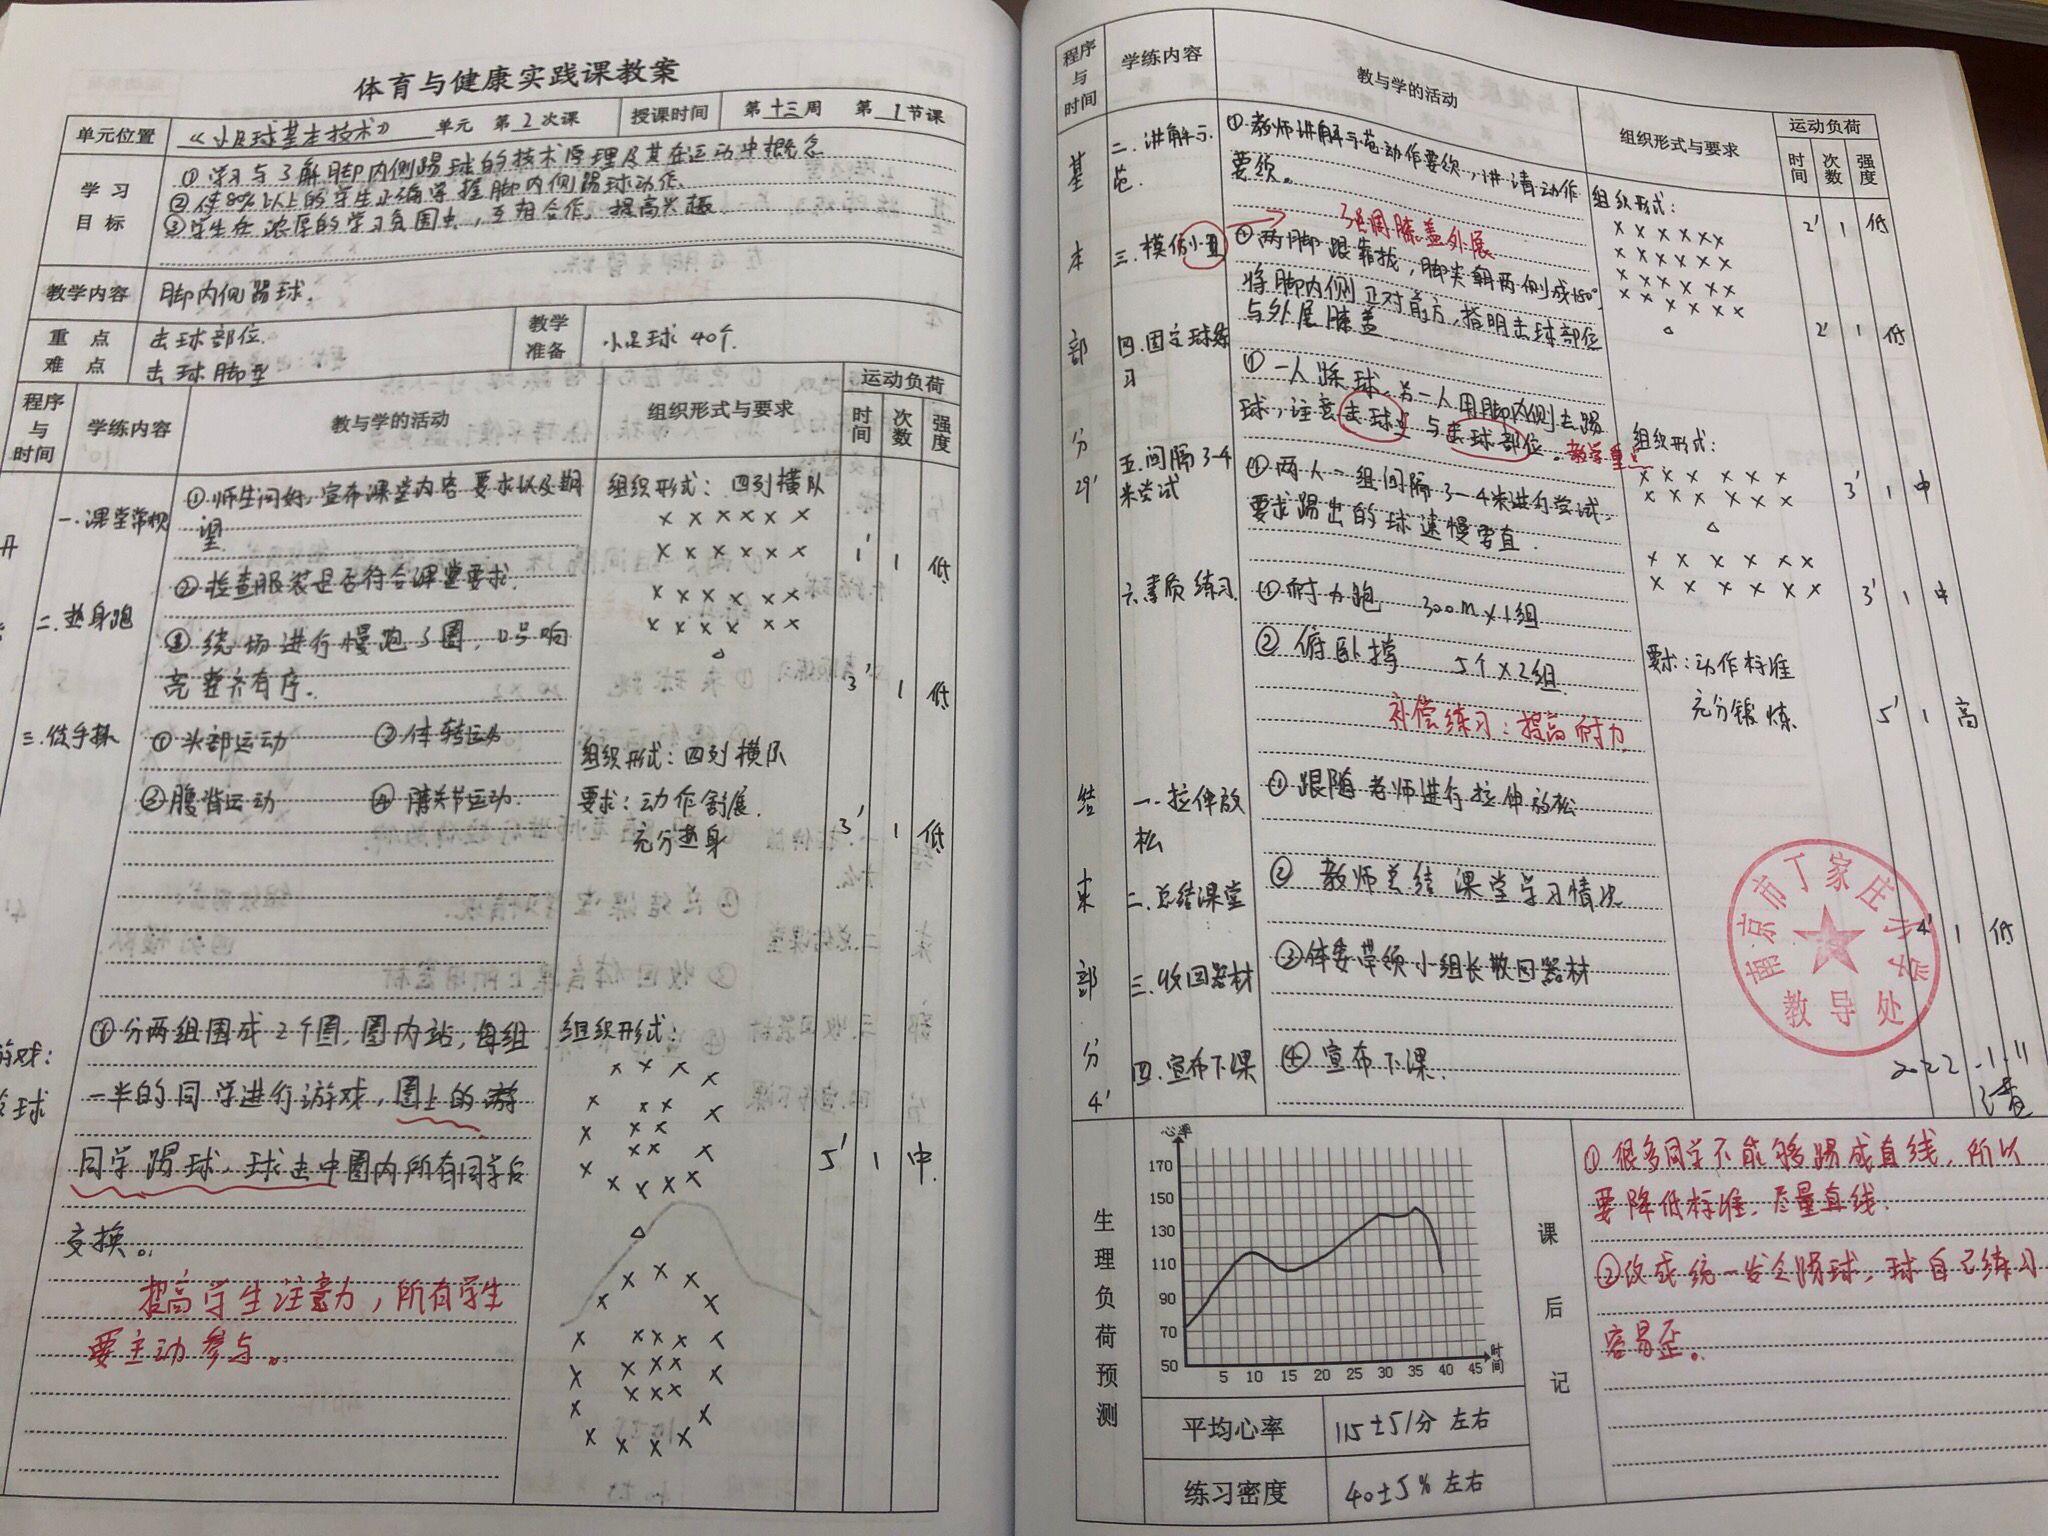 体育与健康实践课教案
单元位置 《小足球基本技术》 单元 第 2 次课 授课时间 第 十三 周 第 1 节课
学习目标
①学习与了解脚内侧踢球的技术原理及其在运动中概念
②使80%以上的学生正确掌握脚内侧踢球动作.
③学生在浓厚的学习氛围中,互相合作,提高兴趣.
教学内容 脚内侧踢球.
重点 击球部位.
难点 击球脚型
教学准备 小足球 40个.
程序与时间 学练内容 教与学的活动 组织形式与要求 运动负荷
时间 次数 强度
一.课堂常规
①师生问好,宣布课堂内容要求以及期
望.
②检查服装是否符合课堂要求.
组织形式:四列横队
1' 1 低
二.热身跑
③绕场进行慢跑3圈,口号响
亮整齐有序.
3' 1 低
三.徒手操
①头部运动 ②体转运动
③腹背运动 ④膝关节运动.
组织形式:四列横队
要求:动作舒展.
充分热身
3' 1 低
游戏:
球
①分两组围成2个圈,圈内站,每组
一半的同学进行游戏,圈上的
同学踢球,球击中圈内所有同学后
交换。
提高学生注意力,所有学生
要主动参与。
组织形式:
5' 1 中
程序与时间 学练内容 教与学的活动 组织形式与要求 运动负荷
时间 次数 强度
基本部分 29'
二.讲解示
范.
①教师讲解示范动作要领,讲清动作
要领。
组织形式:
2' 1 低
三.模仿小丑
强调膝盖外展
①两脚跟靠拢,脚尖朝两侧成180°,
将脚内侧正对前方,指明击球部位
与外展膝盖.
2' 1 低
四.固定球练
习
①一人踩球,另一人用脚内侧去踢
球,注意击球 与击球部位。教学重点
组织形式:
3' 1 中
五.间隔3-4
米尝试
①两人一组间隔3-4米进行尝试,
要求踢出的球速慢要直.
3' 1 中
六.素质练习.
①耐力跑 300m×1组
②俯卧撑 5个×2组.
补偿练习:提高耐力.
要求:动作标准
充分锻炼.
5' 1 高
结束部分 4'
一.拉伸放
松
①跟随老师进行拉伸放松
二.总结课堂
②教师总结课堂学习情况
4' 1 低
三.收回器材
③体委带领小组长收回器材
四.宣布下课
④宣布下课.
南京市丁家庄小学
教导处
2022.1.11
生理负荷预测
心率
170
150
130
110
90
70
50
5 10 15 20 25 30 35 40 45 时间
平均心率 115±5/分 左右
练习密度 40±5% 左右
课后记
①很多同学不能够踢成直线,所以
要降低标准,尽量直线.
②改成统一发令踢球,球自己练习
容易歪。